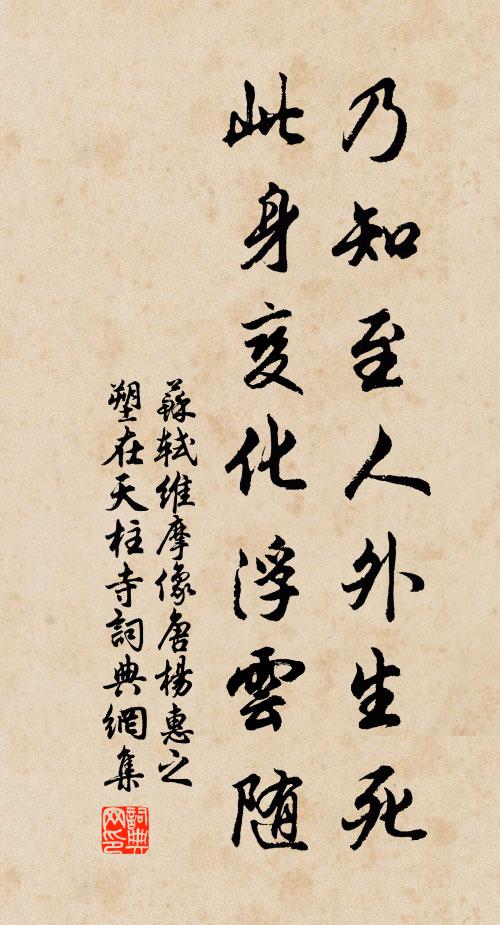 乃知至人外生死
此身变化浮雲随
蘇軾維摩像唐楊惠之
塑在天柱寺詞典網集
詞典网印